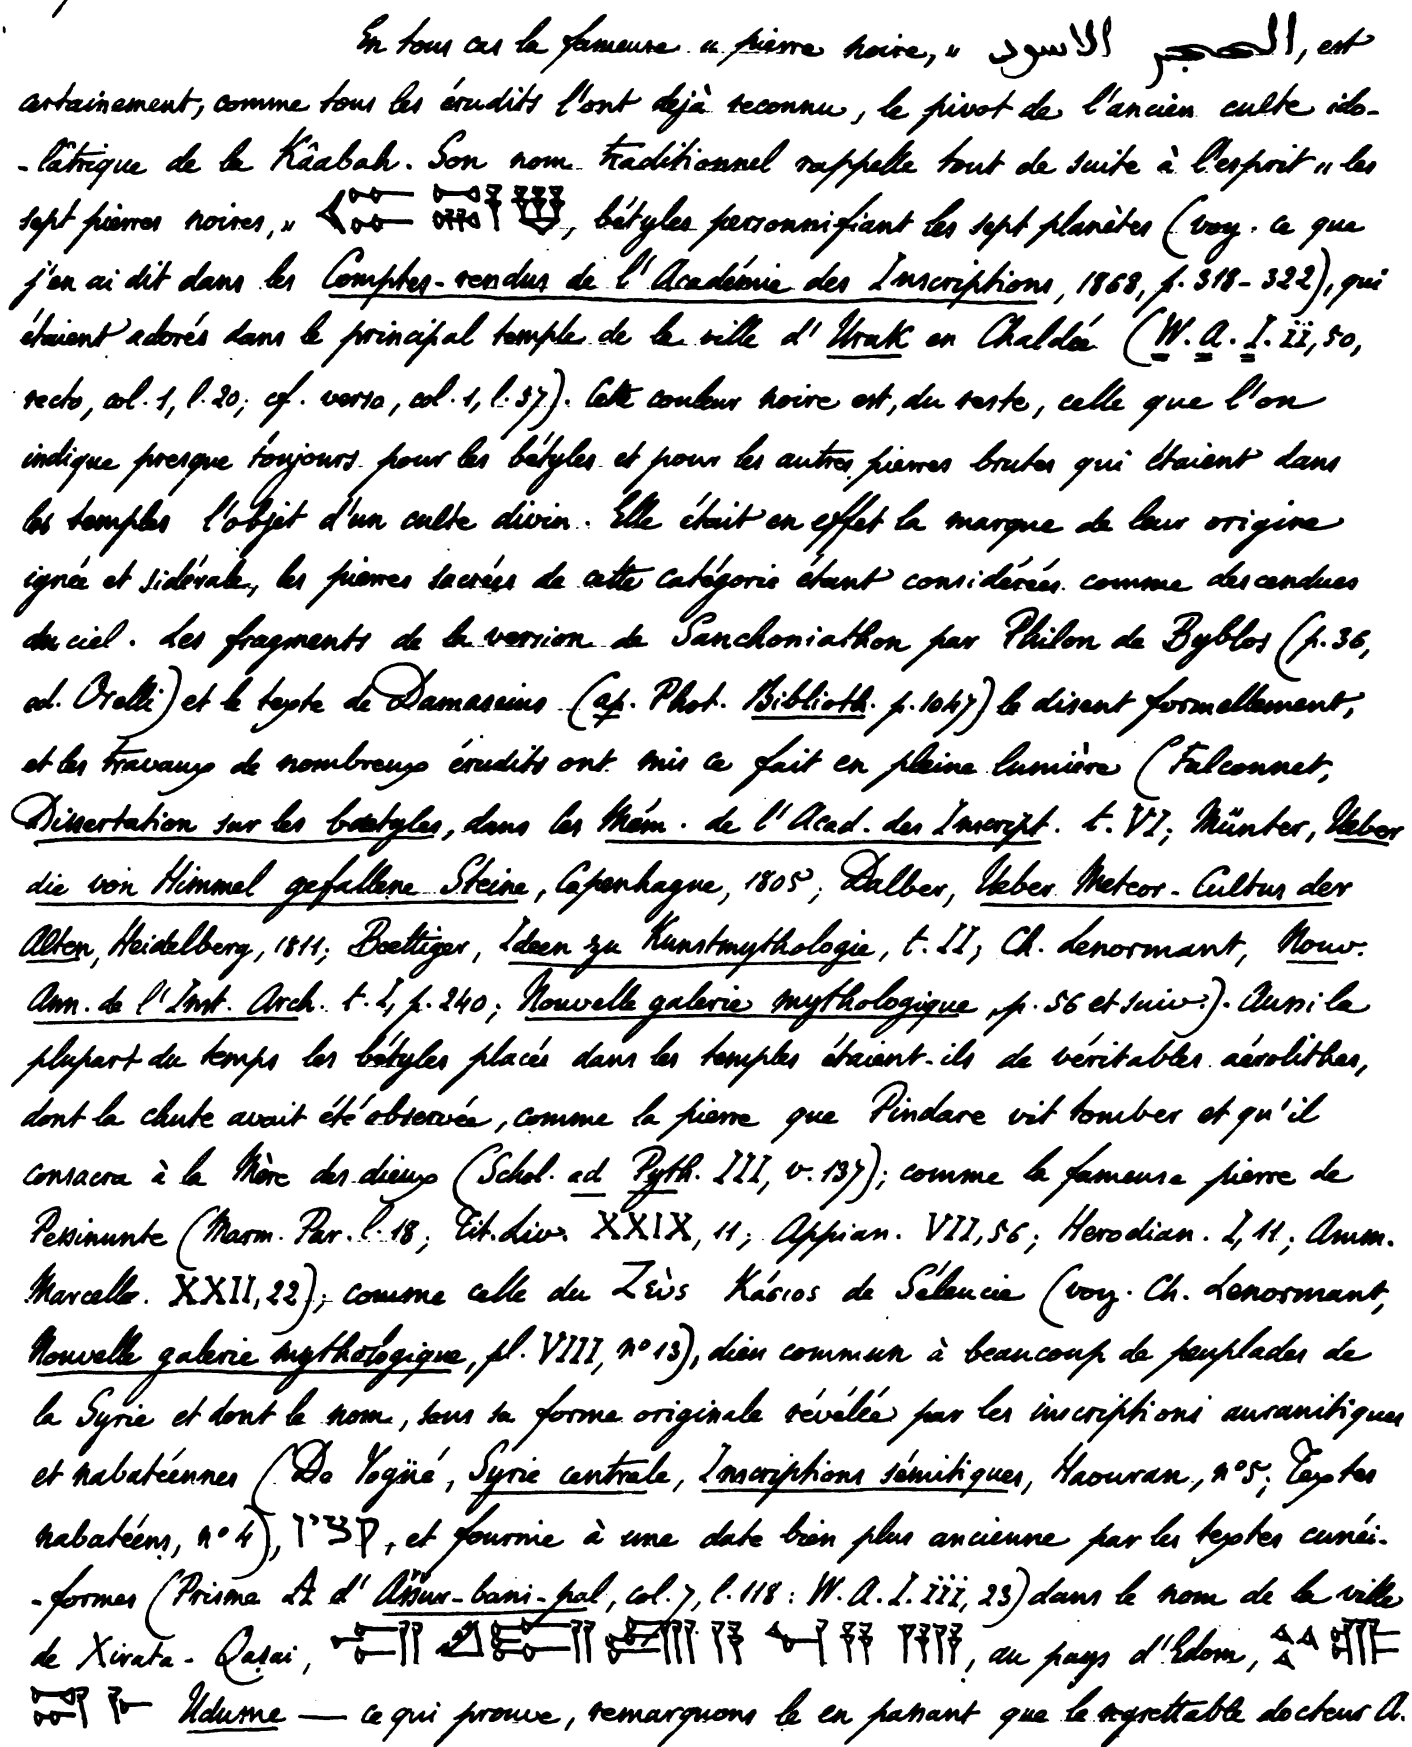 En tous cas la fameuse « pierre noire, » الحجر الاسود, est
certainement, comme tous les érudits l'ont dejà reconnu, le pivot de l'ancien culte ido-
-lâtrique de la Kâabah. Son nom traditionnel rappelle tout de suite à l'esprit « les
sept pierres noires, » , bétyles personnifiant les sept planètes (voy. ce que
j'en ai dit dans les Comptes-rendus de l'Académie des Inscriptions, 1868, p. 318-322), qui
étaient adorés dans le principal temple de la ville d'Uruk en Chaldée (W. A. I. ii, 50,
recto, col. 1, l. 20; cf. verso, col. 1, l. 37). Cette couleur noire est, du reste, celle que l'on
indique presque toujours pour les bétyles et pour les autres pierres brutes qui étaient dans
les temples l'objet d'un culte divin. Elle était en effet la marque de leur origine
ignée et sidérale, les pierres sacrées de cette catégorie étant considérées comme descendues
du ciel. Les fragments de la version de Sanchoniathon par Philon de Byblos (p. 36,
ed. Orelli) et le texte de Damascius (ap. Phot. Biblioth. p. 1047) le disent formellement,
et les travaux de nombreux érudits ont mis ce fait en pleine lumière (Falconnet,
Dissertation sur les bætyles, dans les Mém. de l'Acad. des Inscript. t. VI; Münter, Ueber
die von Himmel gefallene Steine, Copenhague, 1805; Dalber, Ueber Meteor-Cultus der
Alten, Heidelberg, 1811; Bœttiger, Ideen zu Kunstmythologie, t. II; Ch. Lenormant, Nouv.
Ann. de l'Inst. Arch. t. I, p. 240; Nouvelle galerie mythologique, p. 56 et suiv.). Aussi la
plupart du temps les bétyles placés dans les temples étaient-ils de véritables aérolithes,
dont la chute avait été observée, comme la pierre que Pindare vit tomber et qu'il
consacra à la Mère des dieux (Schol. ad Pyth. III, v. 137); comme la fameuse pierre de
Pessinunte (Marm. Par. l. 18; Tit. Liv. XXIX, 11; Appian. VII, 56; Herodian. I, 11; Amm.
Marcell. XXII, 22); comme celle du Ζεὺς Κάσιος de Séleucie (voy. Ch. Lenormant,
Nouvelle galerie mythologique, pl. VIII, n° 13), dieu commun à beaucoup de peuplades de
la Syrie et dont le nom, sous sa forme originale révélée par les inscriptions auranitiques
et nabatéennes (De Vogüé, Syrie centrale, Inscriptions sémitiques, Haouran, n° 5; Textes
nabatéens, n° 4), קציו, et fournie à une date bien plus ancienne par les textes cunéi-
-formes (Prisme A d'Assur-bani-pal, col. 7, l. 118: W. A. I. iii, 23) dans le nom de la ville
de Xirata-Qaṣai, , au pays d'Edom,
Udume — ce qui prouve, remarquons le en passant que le regrettable docteur A.